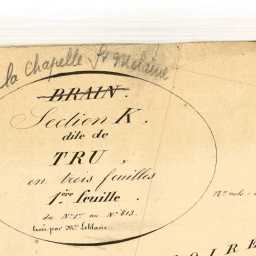 la Chapelle St Melaine
BRAIN.
Section K.
dite de
TRU,
en trois feuilles
1ère feuille.
du N° 1er au N° 813.
levée par Mr Leblanc.
OIRE